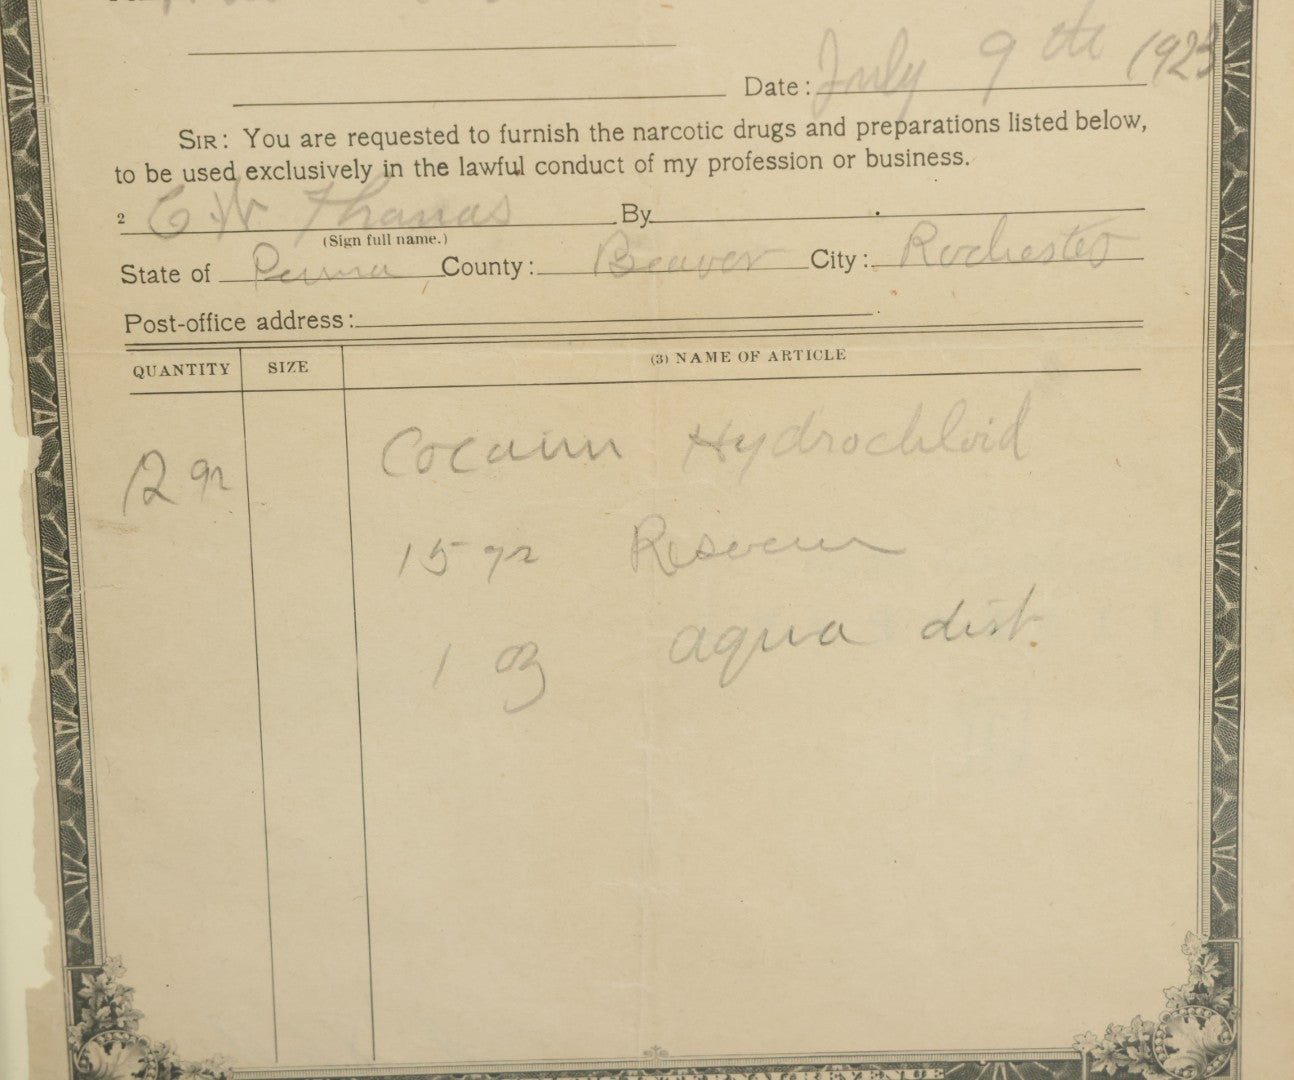 Date: July 9th 1923
SIR: You are requested to furnish the narcotic drugs and preparations listed below,
to be used exclusively in the lawful conduct of my profession or business.
2 C W Thomas By
(Sign full name.)
State of Penna County: Beaver City: Rochester
Post-office address:
QUANTITY SIZE (3) NAME OF ARTICLE
12 gr Cocain Hydrochloid
15 gr
1 oz aqua dist.
REVENUE